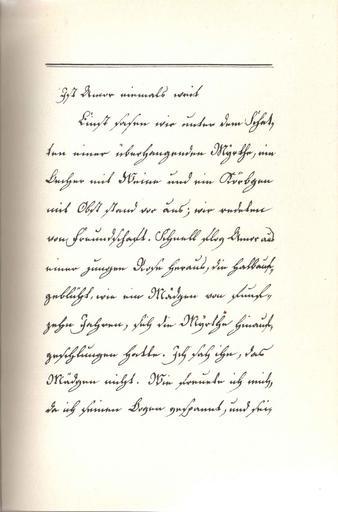 Ist Amor niemals weit
Einst saßen wir unter dem Schat-
ten einer überhangenden Myrthe, ein
Becher mit Weine und ein Körbgen
mit Obst stand vor uns; wir redeten
von Freundschaft. Schnell flog Amor aus
einer jungen Rose heraus, die halbauf-
geblüht, wie ein Mädgen von funf-
zehn Jahren, sich die Myrthe hinauf-
geschlungen hatte. Ich sah ihn, das
Mädgen nicht. Wie freute ich mich,
da ich seinen Bogen gespannt, und sei-